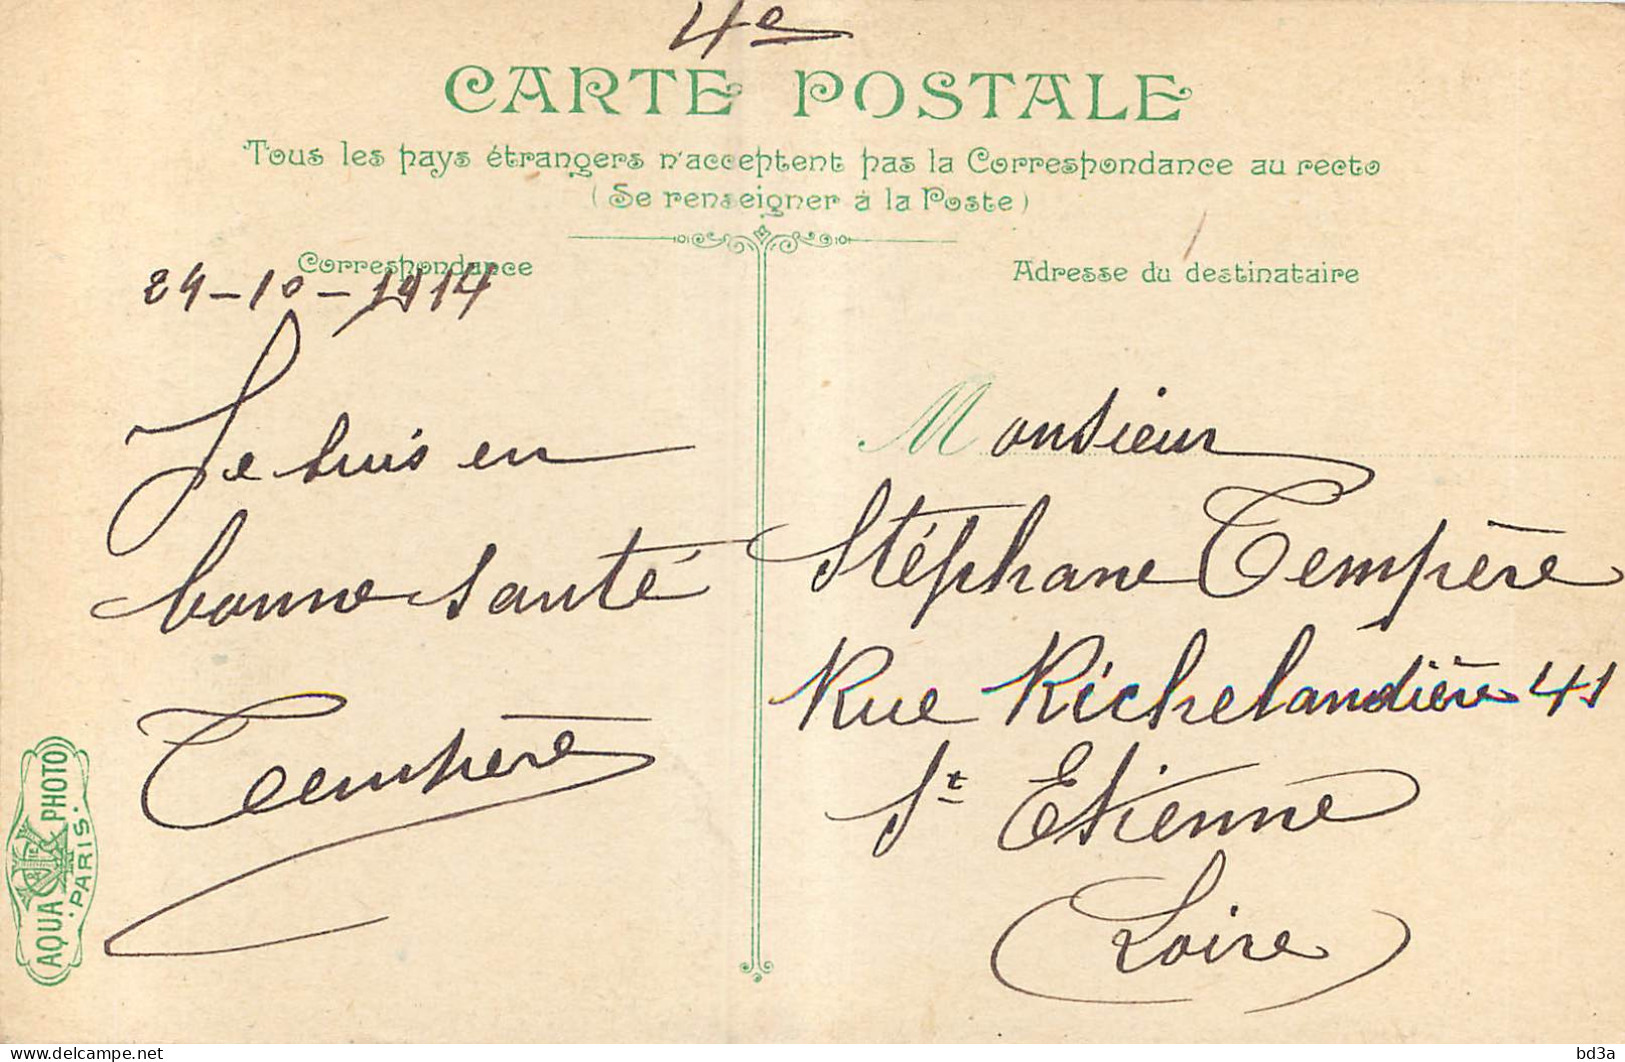 4e
CARTE POSTALE
Tous les pays étrangers n'acceptent pas la Correspondance au recto
(Se renseigner à la Poste)
Correspondance
24-10-1914
Je suis en
bonne santé
Tempère
AQUA PHOTO
PARIS
Adresse du destinataire
Monsieur
Stéphane Tempère
Rue Richelandière 41
St Etienne
(Loire)
bd3a